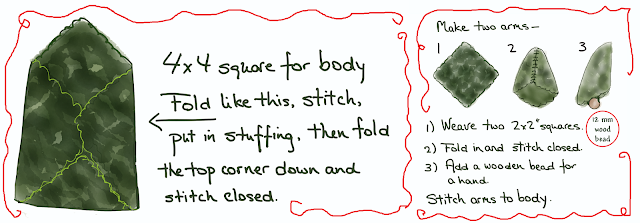 4x4 square for body
Fold like this, stitch,
put in stuffing, then fold
the top corner down and
stitch closed.
Make two arms—
1 2 3
1) Weave two 2x2" squares.
2) Fold in and stitch closed.
3) Add a wooden bead for
a hand.
Stitch arms to body.
12 mm
wood
bead